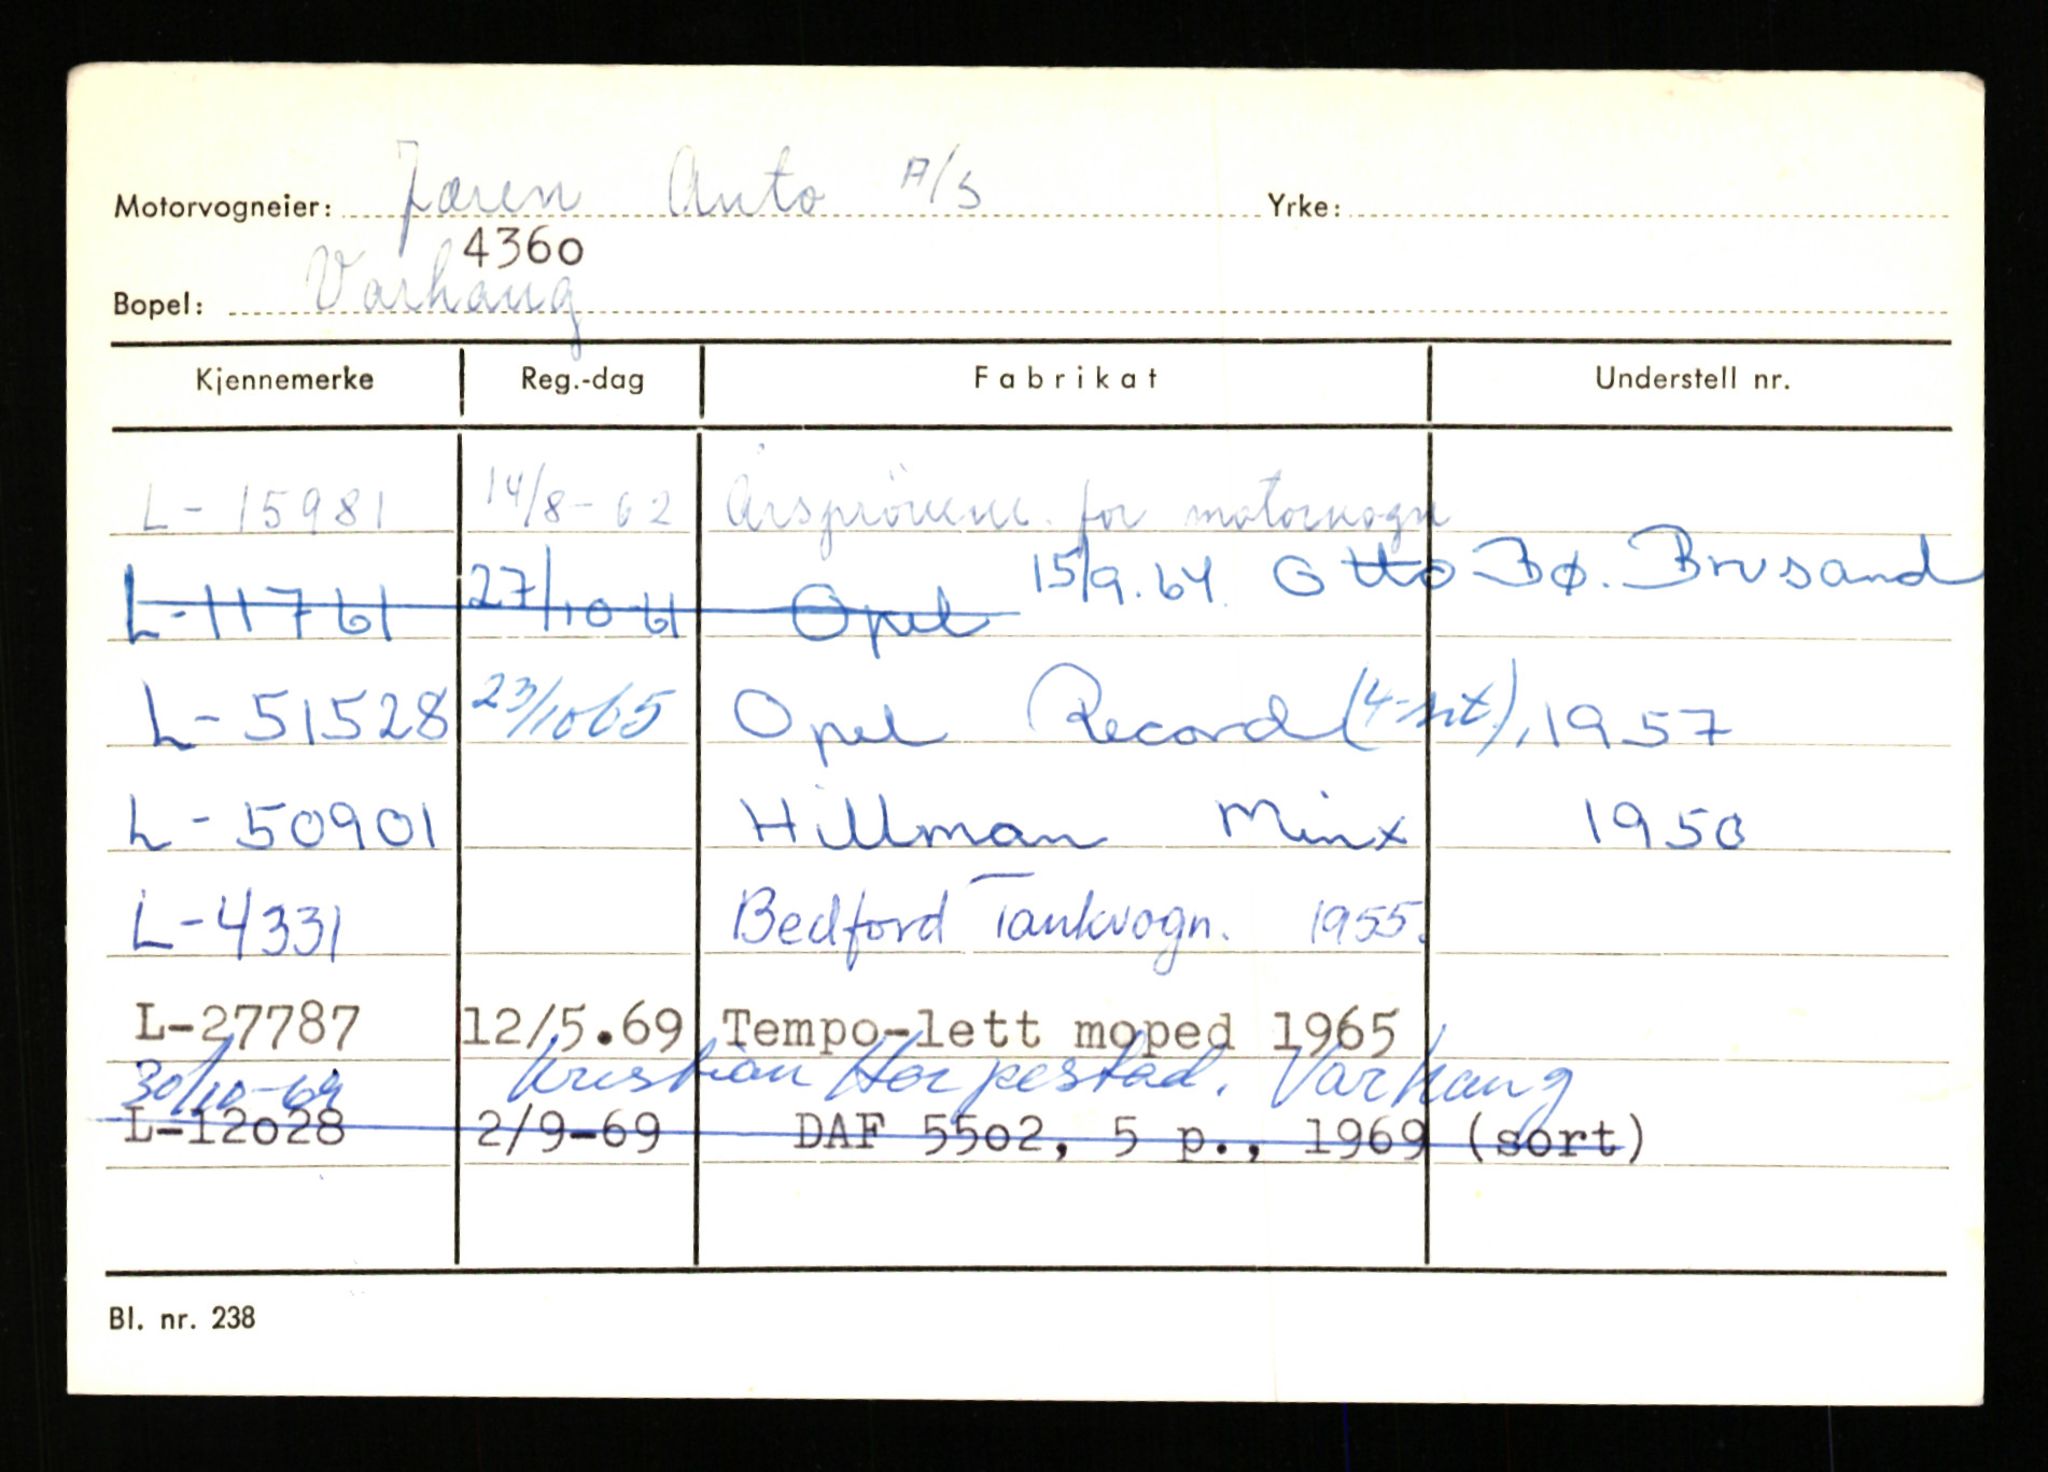 Motorvogneier: Jæren Auto A/S Yrke:
4360
Bopel: Varhaug
Kjennemerke Reg.-dag Fabrikat Understell nr.
L-15981 14/8-62 Årsprövene for motorvogn
L-11761 27/10-61 Opel 15/9.64. Otto Bø. Brusand
L-51528 23/10 65 Opel Record (4-sit), 1957
L-50901 Hillman Minx 1950
L-4331 Bedford Tankvogn. 1955.
L-27787 12/5.69 Tempo-lett moped 1965
30/10-69 Kristian Herpestad. Varhaug
L-12028 2/9-69 DAF 5502, 5 p., 1969 (sort)
Bl. nr. 238